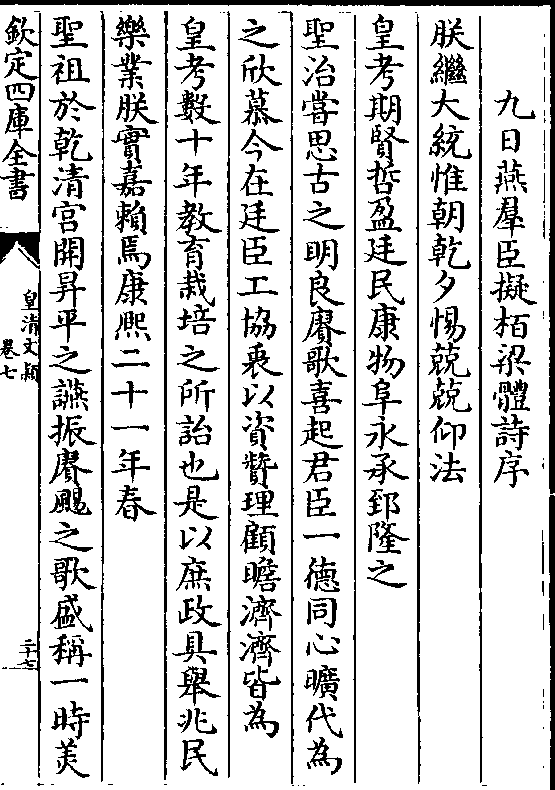 九日燕羣臣擬栢梁體詩序
朕繼大統惟朝乾夕惕兢兢仰法
皇考期賢哲盈廷民康物阜永承郅隆之
聖治嘗思古之明良賡歌喜起君臣一德同心曠代為
之欣慕今在廷臣工協衷以資贊理顧瞻濟濟皆為
皇考數十年教育栽培之所詒也是以庶政具舉兆民
樂業朕實嘉賴焉康熙二十一年春
聖祖於乾清宮開昇平之讌振賡颺之歌盛稱一時美
欽定四庫全書
皇清文穎
卷七
二十七